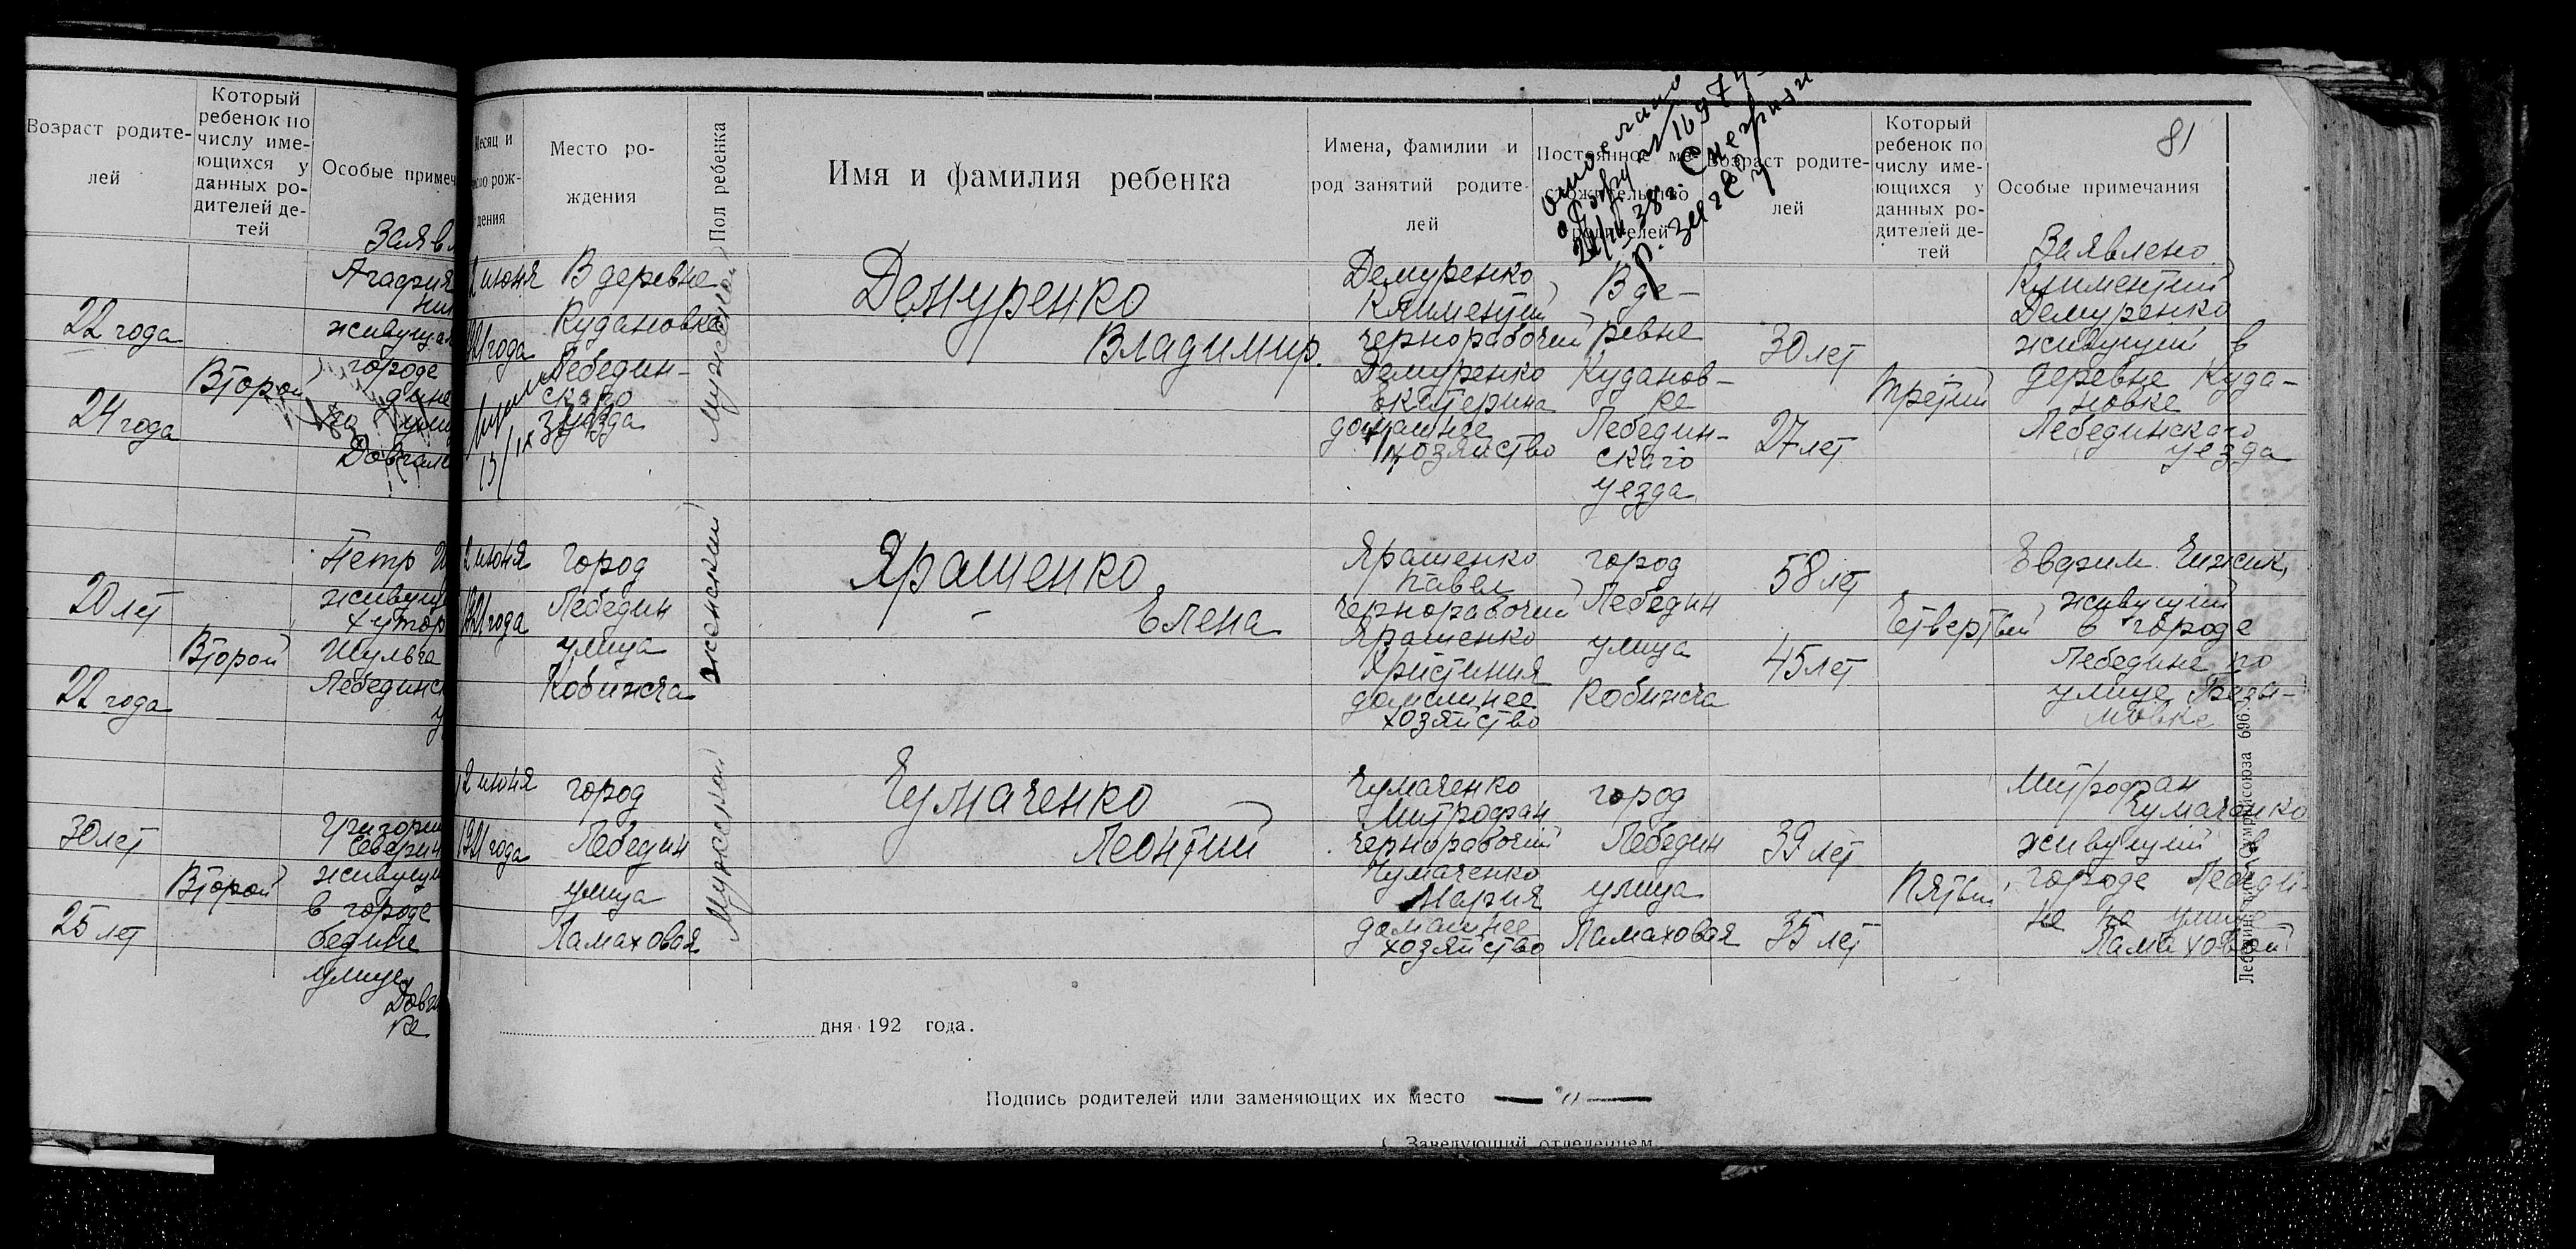 Возраст родите-
лей
Который
ребенок по
числу име-
ющихся у
данных ро-
дителей де-
тей
Особые примеч
Заявл
Агафия
живуща
городе
22 года
Второй
24 года
Петр
живущ
хутор
20 лет
Второй
Лебединс
22 года
30 лет
Григори
живущи
Второй
в городе
25 лет
бедине
улице
Месяц и
число рож-
дения
Место ро-
ждения
Пол ребенка
Имя и фамилия ребенка
Имена, фамилии и
род занятий родите-
лей
Постоянное ме-
стожительство
родителей
Возраст родите-
лей
Который
ребенок по
числу име-
ющихся у
данных ро-
дителей де-
тей
Особые примечания
81
Заявлено
2 июня
1921 года
В деревне
Кудановка
Лебедин-
скаго
уезда
Мужской
Демуренко
Владимир.
Демуренко
Климентий
чернорабочий
Демуренко
Екатерина
домашнее
хозяйство
В де-
ревне
Куданов-
ке
Лебедин-
скаго
уезда
30 лет
27 лет
Третий
Климентий
Демуренко
живущий в
деревне Куда-
новке
Лебединскаго
уезда
2 июня
1921 года
город
Лебедин
улица
Кобижча
женский
Ярашенко
Елена
Ярашенко
Павел
чернорабочий
Ярашенко
Христиния
домашнее
хозяйство
город
Лебедин
улица
Кобижча
58 лет
45 лет
Четвертый
Евфим Чижик,
живущий
в городе
Лебедине по
улице
12 июня
1921 года
город
Лебедин
улица
Ламаховая
Мужской
Чумаченко
Леонтий
Чумаченко
Митрофан
чернорабочий
Чумаченко
Мария
домашнее
хозяйство
город
Лебедин
улица
Ламаховая
39 лет
35 лет
Пятый
Митрофан
Чумаченко
живущий в
городе Лебеди-
не по улице
Ламаховой
дня 192 года.
Подпись родителей или заменяющих их место
Заведующий отделением